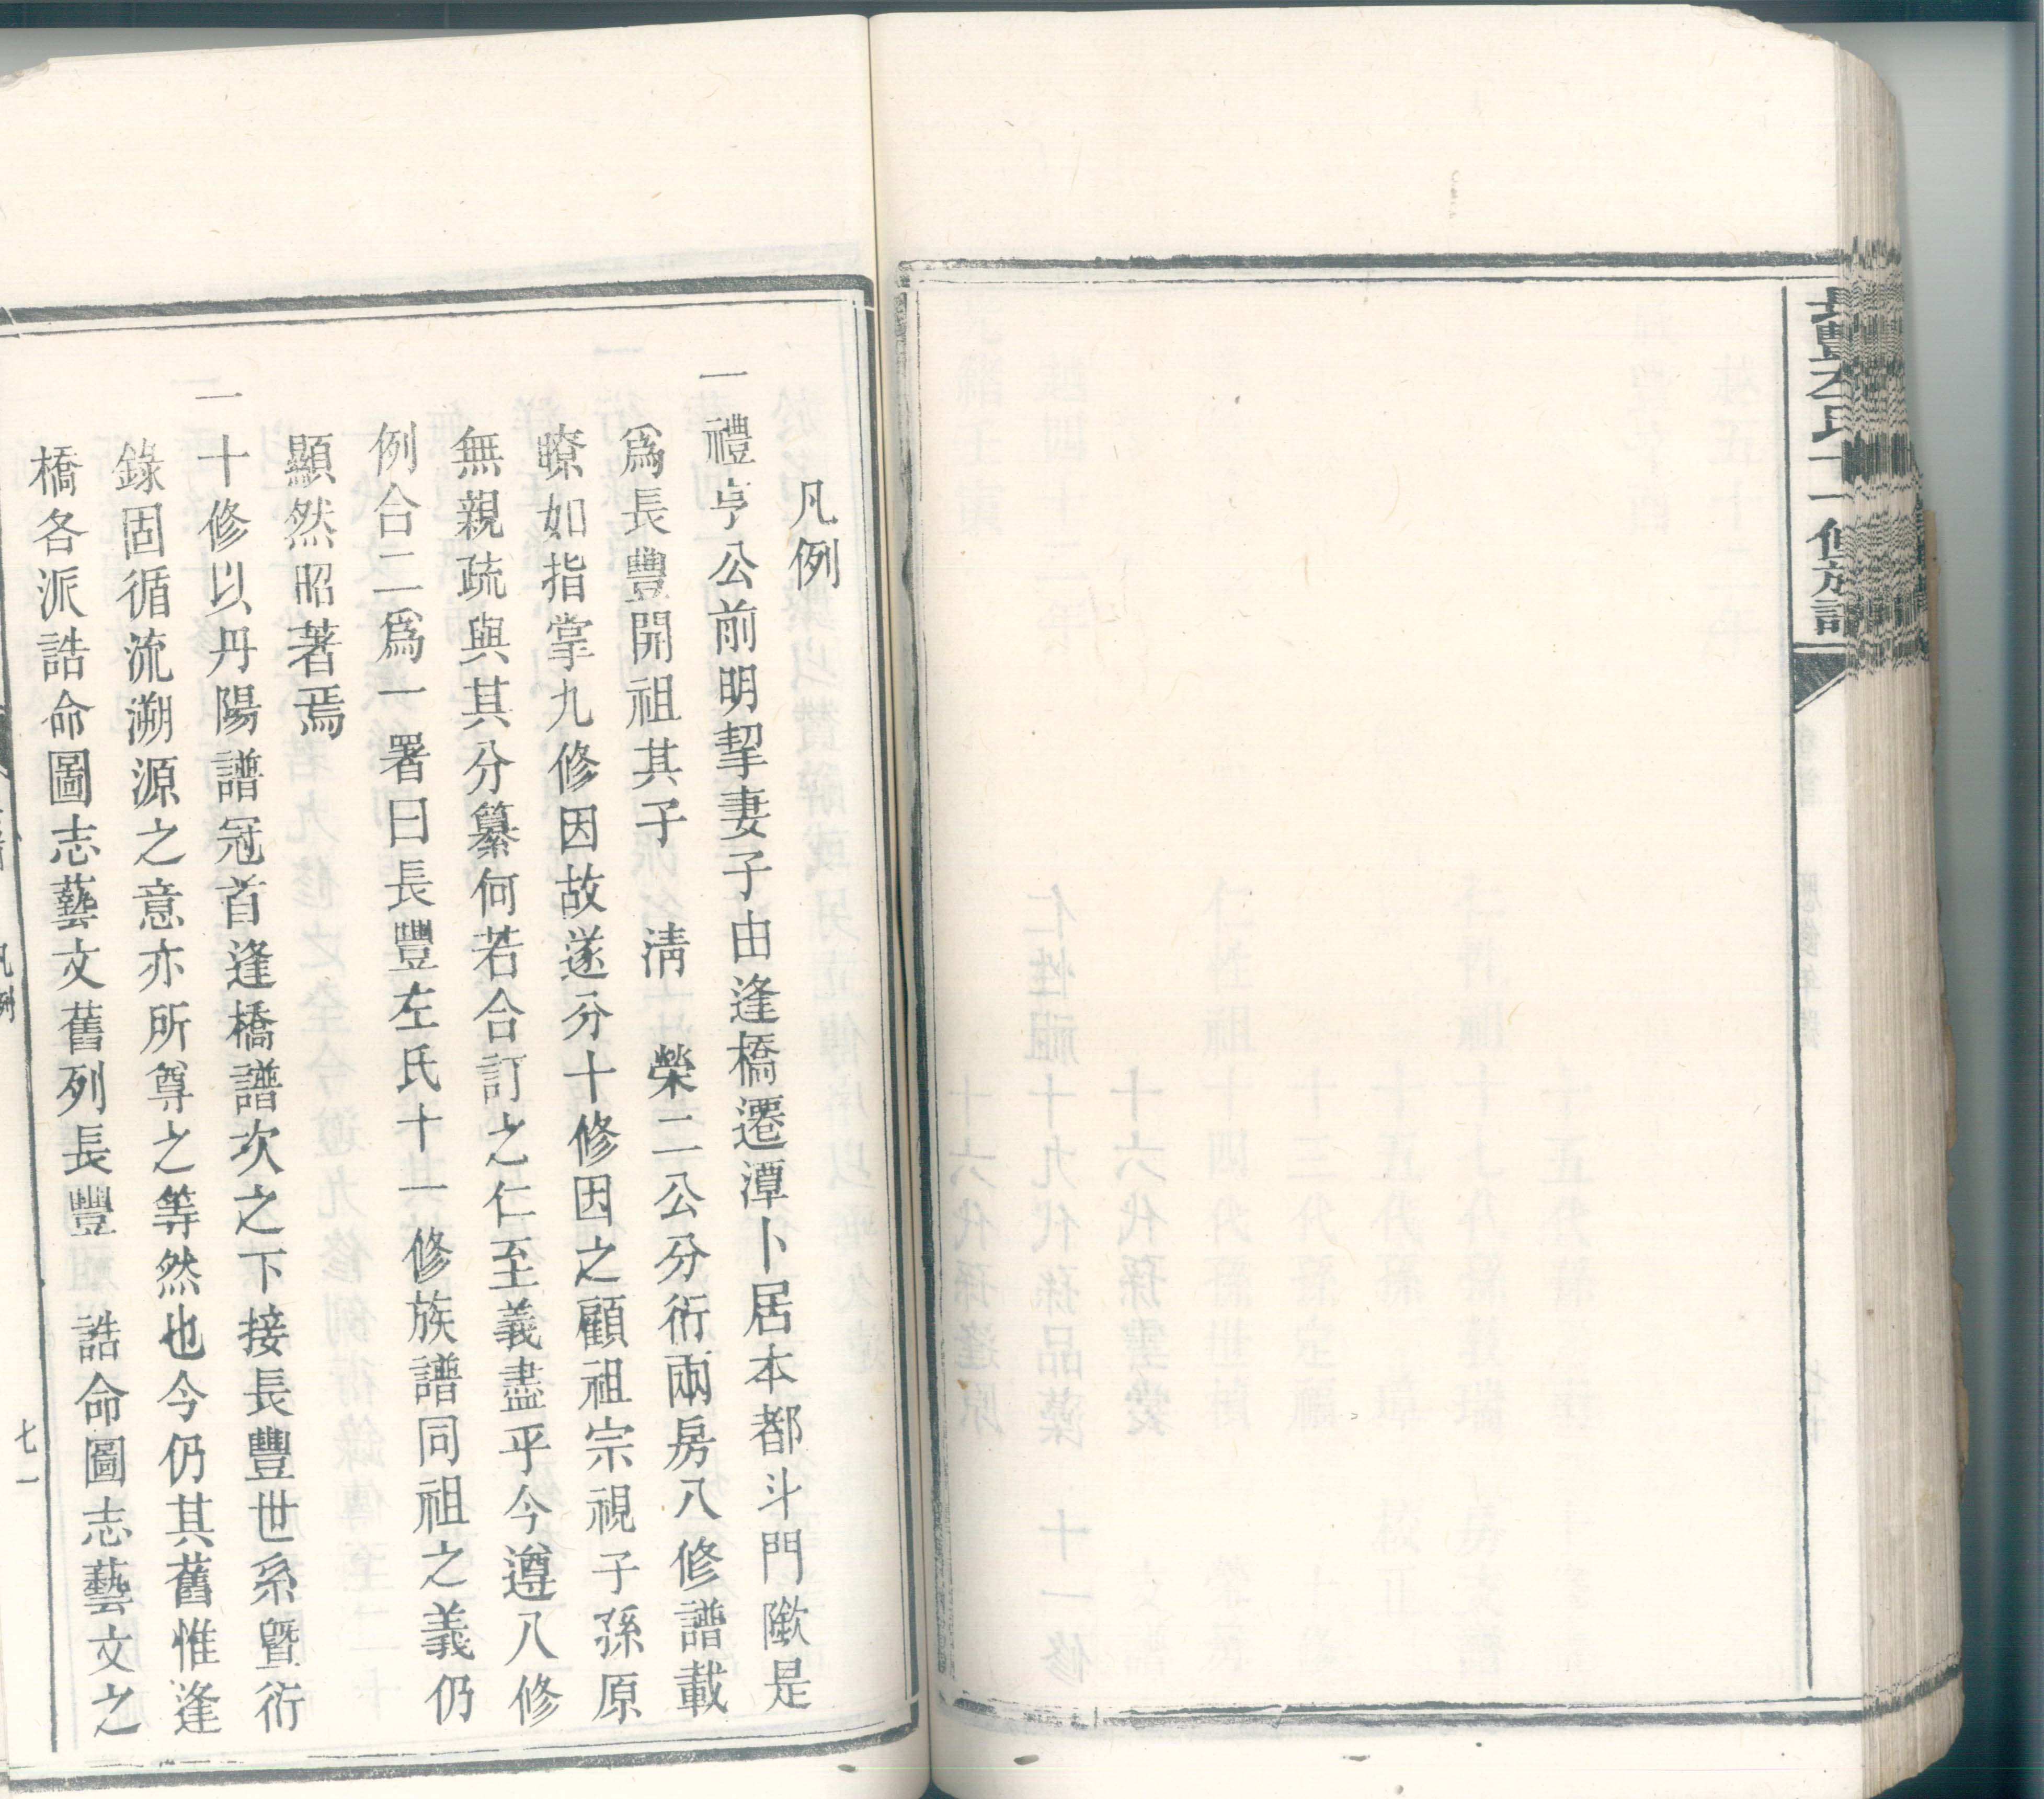 長豐左氏十一修族譜
凡例
一禮亨公前明挈妻子由逢橋遷潭卜居本都斗門歟是
爲長豐開祖其子 淸 榮二公分衍兩房八修譜載
瞭如指掌九修因故遂分十修因之顧祖宗視子孫原
無親疏與其分纂何若合訂之仁至義盡乎今遵八修
例合二爲一署曰長豐左氏十一修族譜同祖之義仍
顯然昭著焉
一十修以丹陽譜冠首逢橋譜次之下接長豐世系曁衍
錄固循流溯源之意亦所尊之等然也今仍其舊惟逢
橋各派誥命圖志藝文舊列長豐 誥命圖志藝文之
凡例
七一